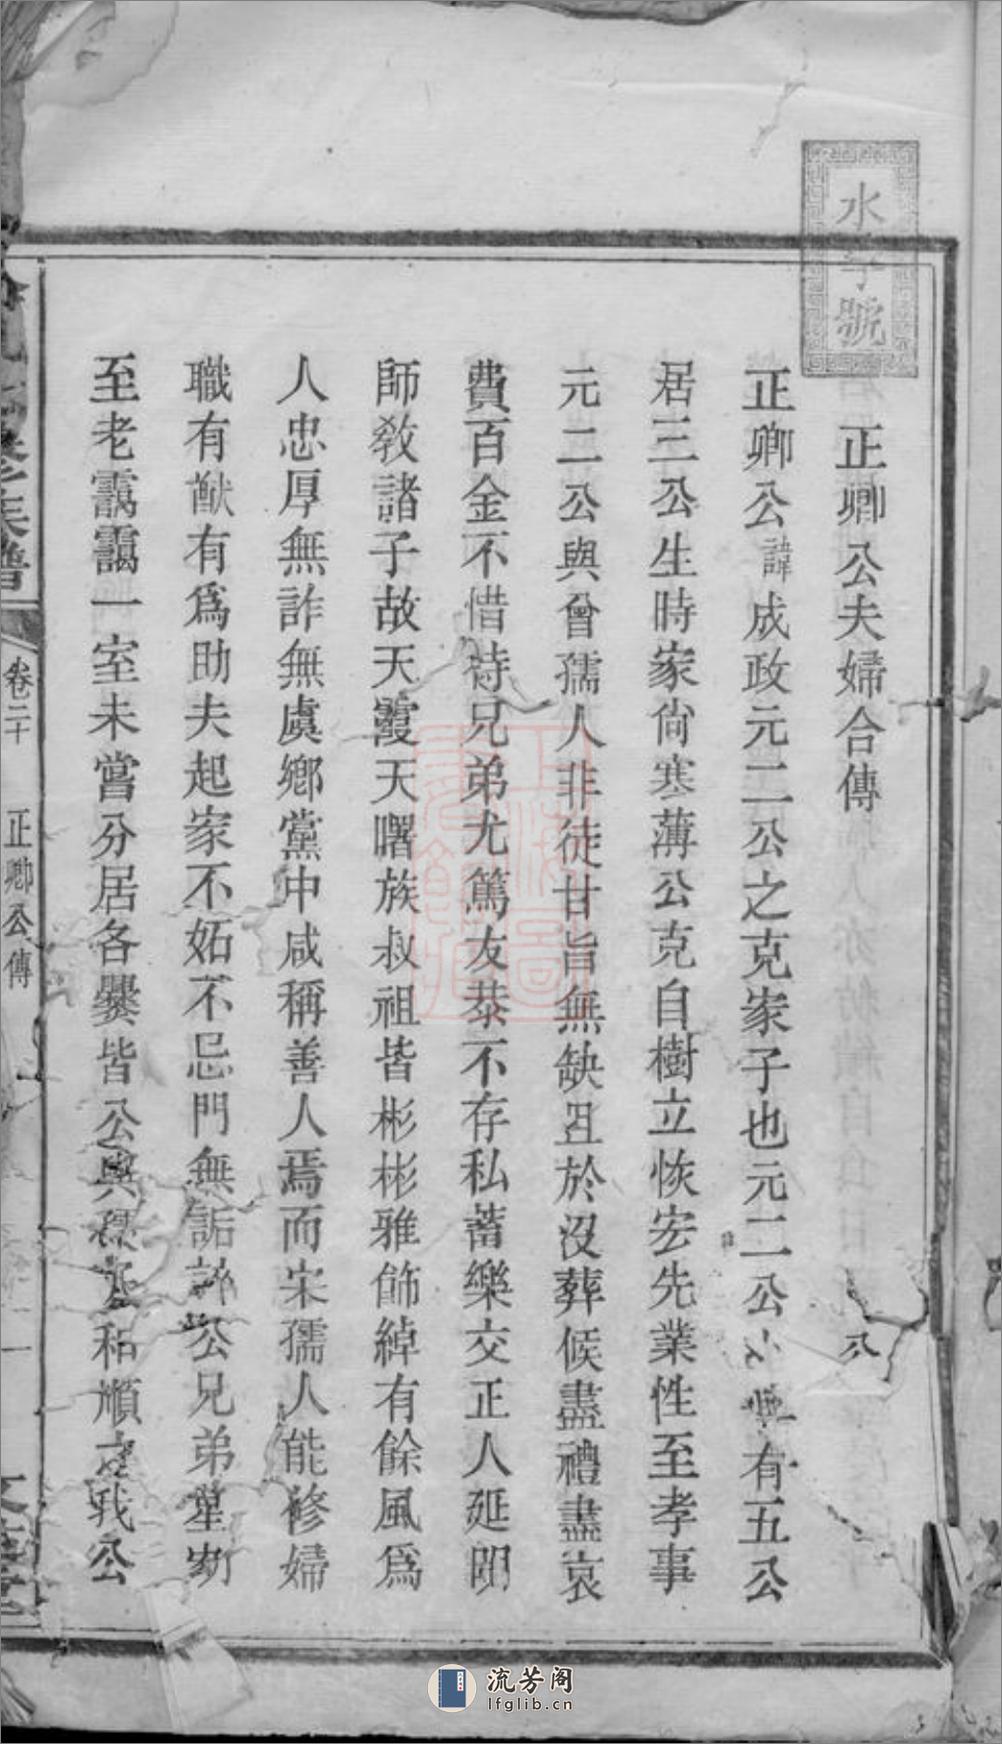 水字號
正卿公夫婦合傳
八
正卿公諱成政元二公之克家子也元二公有五公
居三公生時家尙寒薄公克自樹立恢宏先業性至孝事
元二公與曾孺人非徒甘旨無缺且於沒葬候盡禮盡哀
費百金不惜待兄弟尤篤友恭不存私蓄樂交正人延明
師敎諸子故天霞天曙族叔祖皆彬彬雅飾綽有餘風爲
人忠厚無詐無虞鄉黨中咸稱善人焉而宋孺人能修婦
職有猷有爲助夫起家不妬不忌門無詬誶公兄弟聖幼
至老靄靄一室未嘗分居各爨皆公與和順之我公
修族譜
卷二十
正卿公傳
一
流芳阁
lfglib.cn